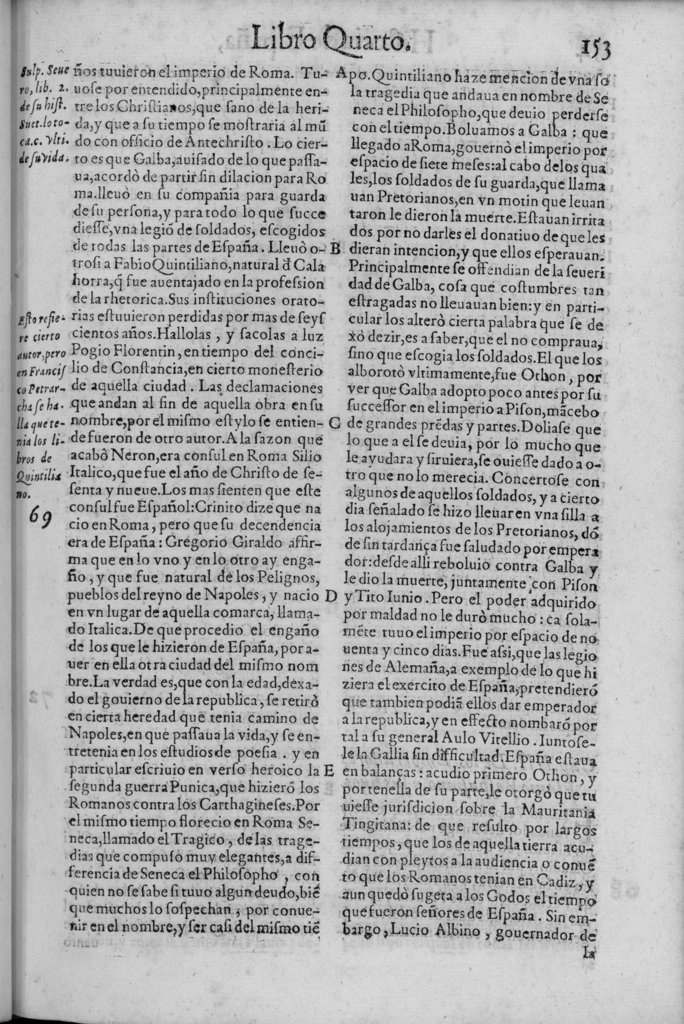 Libro Quarto.
153
Sulp. Seue
ro, lib. 2.
de su hist.
Suet. lo to-
ca. c. vlti.
de su vida.
ños tuuieron el imperio de Roma. Tu-
uose por entendido, principalmente en-
tre los Christianos, que sano de la heri-
da, y que a su tiempo se mostraria al mũ
do con officio de Antechristo. Lo cier-
to es que Galba, auisado de lo que passa-
ua, acordò de partir sin dilacion para Ro
ma. lleuò en su compañia para guarda
de su persona, y para todo lo que succe
diesse, vna legiõ de soldados, escogidos
de todas las partes de España. Lleuò o-
trosi a Fabio Quintiliano, natural d̃ Cala
horra, q̃ fue auentajado en la profession
de la rhetorica. Sus instituciones orato-
rias estuuieron perdidas por mas de seys
cientos años. Hallolas, y sacolas a luz
Pogio Florentin, en tiempo del conci-
lio de Constancia, en cierto monesterio
de aquella ciudad. Las declamaciones
que andan al fin de aquella obra en su
nombre, por el mismo estylo se entien-
de fueron de otro autor. A la sazon que
acabò Neron, era consul en Roma Silio
Italico, que fue el año de Christo de se-
senta y nueue. Los mas sienten que este
consul fue Español: Crinito dize que na
cio en Roma, pero que su decendencia
era de España: Gregorio Giraldo affir-
ma que en lo vno y en lo otro ay enga-
ño, y que fue natural de los Pelignos,
pueblos del reyno de Napoles, y nacio
en vn lugar de aquella comarca, llama-
do Italica. De que procedio el engaño
de los que le hizieron de España, por a-
uer en ella otra ciudad del mismo nom
bre. La verdad es, que con la edad, dexa-
do el gouierno de la republica, se retirò
en cierta heredad que tenia camino de
Napoles, en que passaua la vida, y se en-
tretenia en los estudios de poesia. y en
particular escriuio en verso heroico la
segunda guerra Punica, que hizierõ los
Romanos contra los Carthagineses. Por
el mismo tiempo florecio en Roma Se-
neca, llamado el Tragico, de las trage-
dias que compuso muy elegantes, a dif-
ferencia de Seneca el Philosopho, con
quien no se sabe si tuuo algun deudo, biẽ
que muchos lo sospechan, por conue-
nir en el nombre, y ser casi del mismo tiẽ
Esto refie-
re cierto
autor, pero
en Francis
co Petrar-
cha se ha-
lla que te-
nia los li-
bros de
Quintilia
no.
69
A
B
C
D
E
po. Quintiliano haze mencion de vna so
la tragedia que andaua en nombre de Se
neca el Philosopho, que deuio perderse
con el tiempo. Boluamos a Galba: que
llegado a Roma, gouernò el imperio por
espacio de siete meses: al cabo de los qua
les, los soldados de su guarda, que llama
uan Pretorianos, en vn motin que leuan
taron le dieron la muerte. Estauan irrita
dos por no darles el donatiuo de que les
dieran intencion, y que ellos esperauan.
Principalmente se offendian de la seueri
dad de Galba, cosa que costumbres tan
estragadas no lleuauan bien: y en parti-
cular los alterò cierta palabra que se de
xò dezir, es a saber, que el no compraua,
sino que escogia los soldados. El que los
alborotò vltimamente, fue Othon, por
ver que Galba adopto poco antes por su
successor en el imperio a Pison, mãcebo
de grandes prẽdas y partes. Doliase que
lo que a el se deuia, por lo mucho que
le ayudara y siruiera, se ouiesse dado a o-
tro que no lo merecia. Concertose con
algunos de aquellos soldados, y a cierto
dia señalado se hizo lleuar en vna silla a
los alojamientos de los Pretorianos, dõ
de sin tardança fue saludado por empera
dor: desde alli reboluio contra Galba y
le dio la muerte, juntamente con Pison
y Tito Iunio. Pero el poder adquirido
por maldad no le durò mucho: ca sola-
mẽte tuuo el imperio por espacio de no
uenta y cinco dias. Fue assi, que las legio
nes de Alemaña, a exemplo de lo que hi
ziera el exercito de España, pretendierõ
que tambien podiã ellos dar emperador
a la republica, y en effecto nombarõ por
tal a su general Aulo Vitellio. Iuntose-
le la Gallia sin difficultad. España estaua
en balanças: acudio primero Othon, y
por tenella de su parte, le otorgò que tu
uiesse jurisdicion sobre la Mauritania
Tingitana: de que resulto por largos
tiempos, que los de aquella tierra acu-
dian con pleytos a la audiencia o conuẽ
to que los Romanos tenian en Cadiz, y
aun quedò sugeta a los Godos el tiempo
que fueron señores de España. Sin em-
bargo, Lucio Albino, gouernador de
la